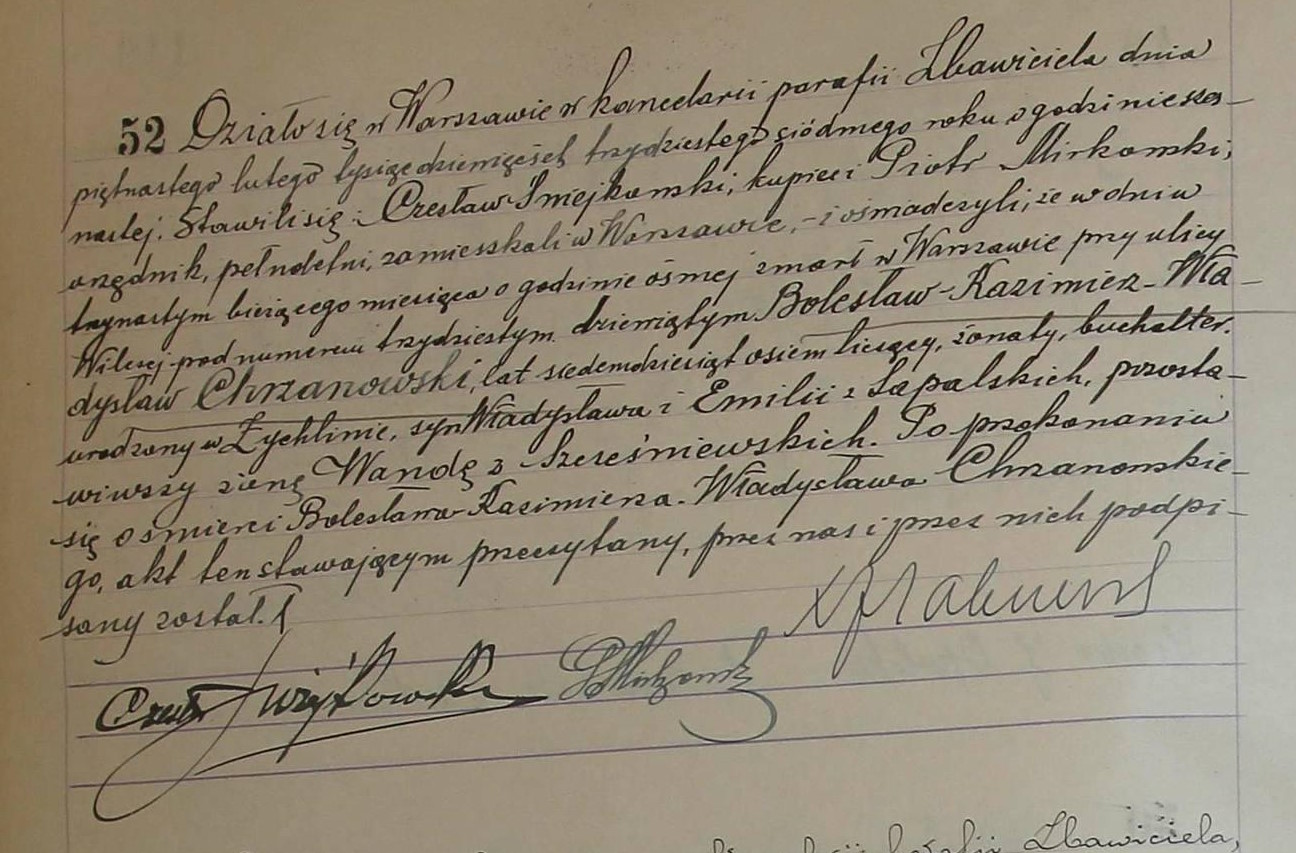 52 Działo się w Warszawie w kancelarii parafii Zbawiciela dnia
piętnastego lutego tysiąc dziewięćset trzydziestego siódmego roku o godzinie szes-
nastej. Stawili się: Czesław Śmejkowski, kupiec i Piotr Mirkowski,
urzędnik, pełnoletni, zamieszkali w Warszawie, - i oświadczyli, że w dniu
trzynastym bieżącego miesiąca o godzinie ósmej zmarł w Warszawie przy ulicy
Wilczej pod numerem trzydziestym dziewiątym Bolesław-Kazimierz-Wła-
dysław Chrzanowski, lat siedemdziesiąt osiem liczący, żonaty, buchalter,
urodzony w Żychlinie, syn Władysława i Emilii z Sapalskich, pozosta-
wiwszy żonę Wandę z Szcześniewskich. Po przekonaniu
się o śmierci Bolesława-Kazimierza-Władysława Chrzanowskie-
go, akt ten stawającym przeczytany, przez nas i przez nich podpi-
sany został.
Zbawiciela,